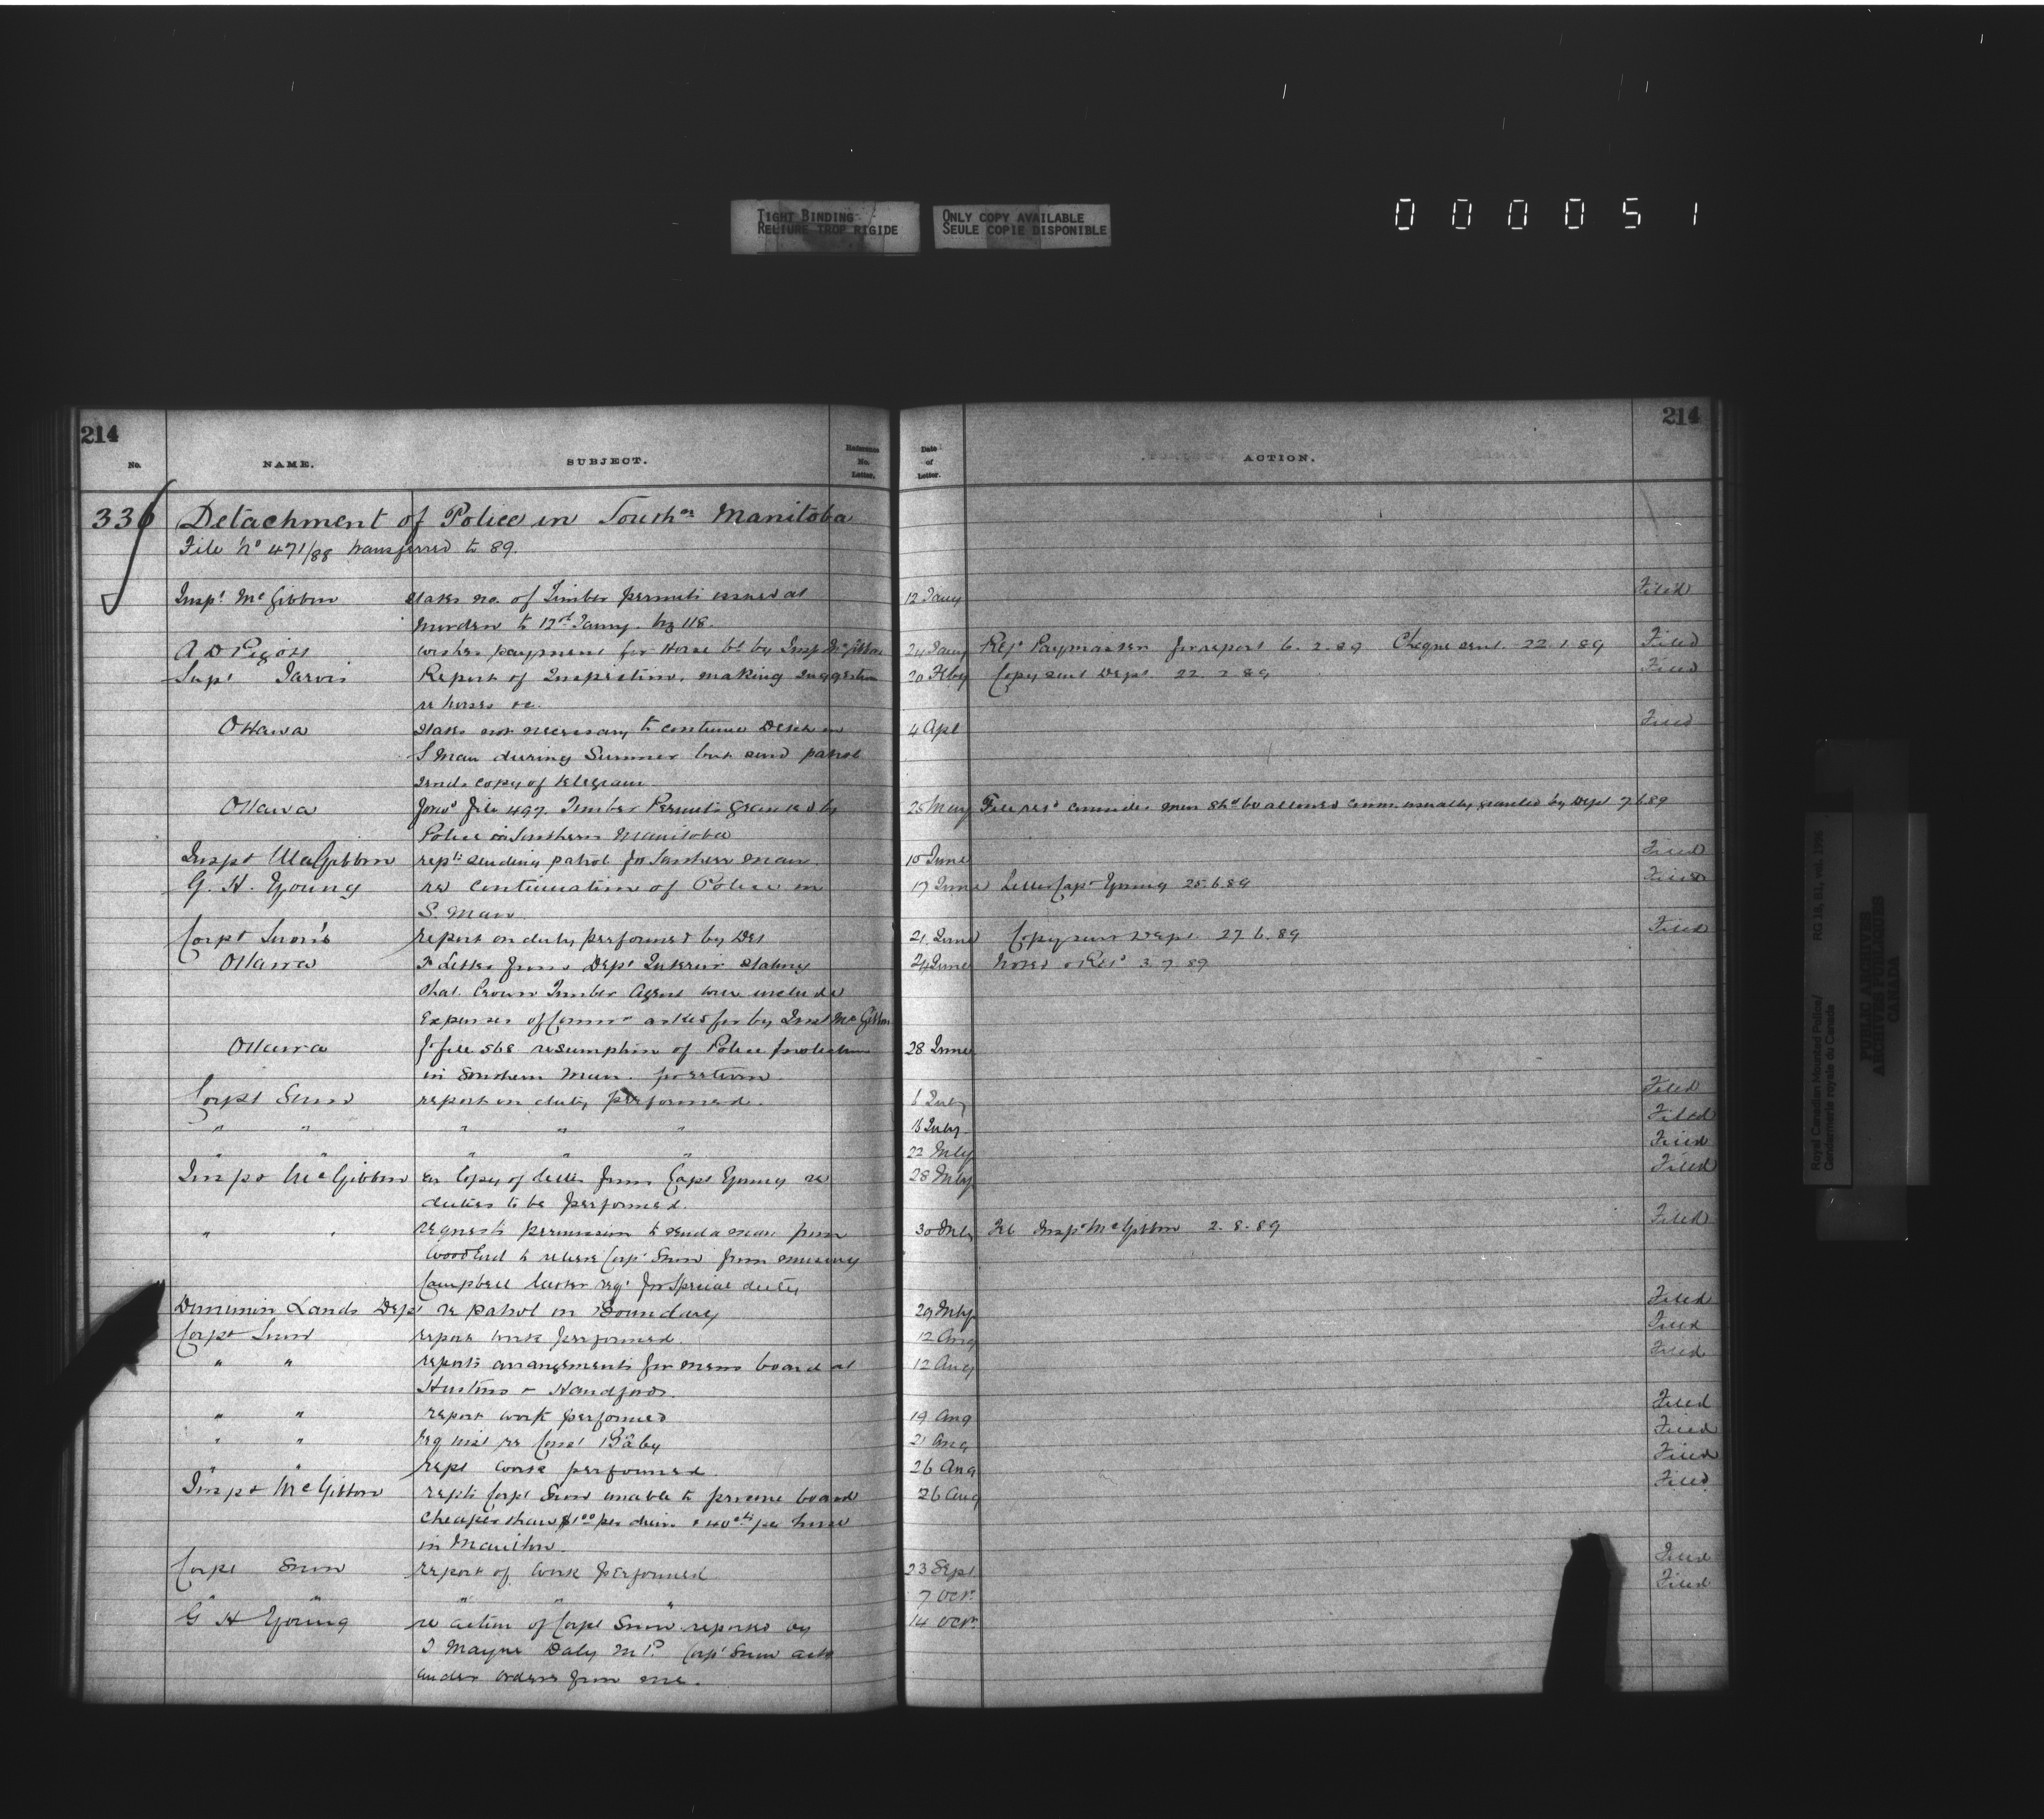 TIGHT BINDING
RELIURE TROP RIGIDE
ONLY COPY AVAILABLE
SEULE COPIE DISPONIBLE
000051
214
214
No.
NAME.
SUBJECT.
Reference No. Letter.
Date of Letter.
ACTION.
336 Detachment of Police in South'n Manitoba
File No 471/88 transferred to 89.
Inspt McGibbon states no. of Timber permits issued at 12 Jany Filed
to 12th Jany. 118.
A D Pigott wishes payment for Horse bt by Insp McGibbon 24 Jany Paymaster for report 6.2.89 Cheque sent 22.1.89 Filed
Supt Jarvis Report of Inspection, making suggestion 20 Feby Copy sent Dept. 22.2.89 Filed
re horses &c.
Ottawa states not necessary to continue Detch in 4 Apl Filed
S Man during Summer but send patrol
sends copy of telegram
Ottawa forwd file 497. Timber Permits granted by 25 May File retd consider men shd be allowed Commn usually granted by Dept 7.6.89
Police in Southern Manitoba
Inspt McGibbon repts sending patrol to Southern Man. 10 June Filed
G. H. Young re continuation of Police in 17 June Letter Capt Young 25.6.89 Filed
S. Man
Corpl Snow's report on duty performed by Det 21 June Copy sent Dept. 27.6.89 Filed
Ottawa Fr Letter from Dept Interior stating 24 June Noted & Retd 3.7.89
that Crown Timber Agent will include
Expenses of Commn asked for by Inst McGibbon
Ottawa fr file 568 resumption of Police protection 28 June
in Southern Man.
Corpl Snow report on duty performed. 6 July Filed
" " " " " 15 July. Filed
" " " " " 22 July Filed
Inspt McGibbon Copy of letter from Capt Young re 28 July Filed
duties to be performed.
" " requests permission to send a man from 30 July Inspt McGibbon 2.8.89 Filed
Wood End to relieve Corpl Snow from nursing
Campbell latter reqd for special duty
Dominion Lands Dept re patrol on Boundary 29 July Filed
Corpl Snow report work performed. 12 Aug Filed
" " reports arrangements for mens board at 12 Aug Filed
Hustons & Handfords.
" " report work performed 19 Aug Filed
" " re Const Baby 21 Aug Filed
" " rept work performed. 26 Aug Filed
Inspt McGibbon repts Corpl Snow unable to procure board 26 Aug Filed
cheaper than $1.00 per diem & 40 cts per horse
in Manitou.
Corpl Snow report of work performed 23 Sept Filed
" " " " " 7 Octr. Filed
G H Young re action of Corpl Snow reported by 14 Octr.
T Mayne Daly M.P. Corpl Snow acts
under orders from me.
Royal Canadian Mounted Police/
Gendarmerie royale du Canada
RG 18, B1, vol. 1996
PUBLIC ARCHIVES
ARCHIVES PUBLIQUES
CANADA